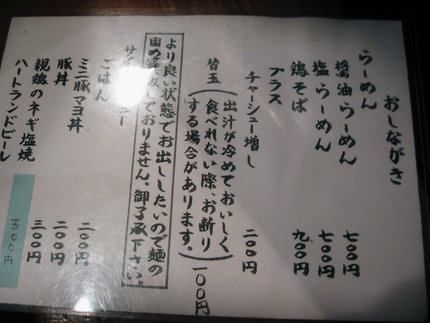 おしながき
らーめん
醤油らーめん 七〇〇円
塩らーめん 七〇〇円
鶏そば 九〇〇円
プラス
チャーシュー増し 二〇〇円
替玉(出汁が冷めておいしく食べれない際、お断りする場合があります。)一〇〇円
より良い状態でお出ししたいので麺の
ておりません。御了承下さい。
ごはん
ミニ豚マヨ丼 二〇〇円
豚丼 二〇〇円
親鶏のネギ塩焼 三〇〇円
ハートランドビール 五〇〇円